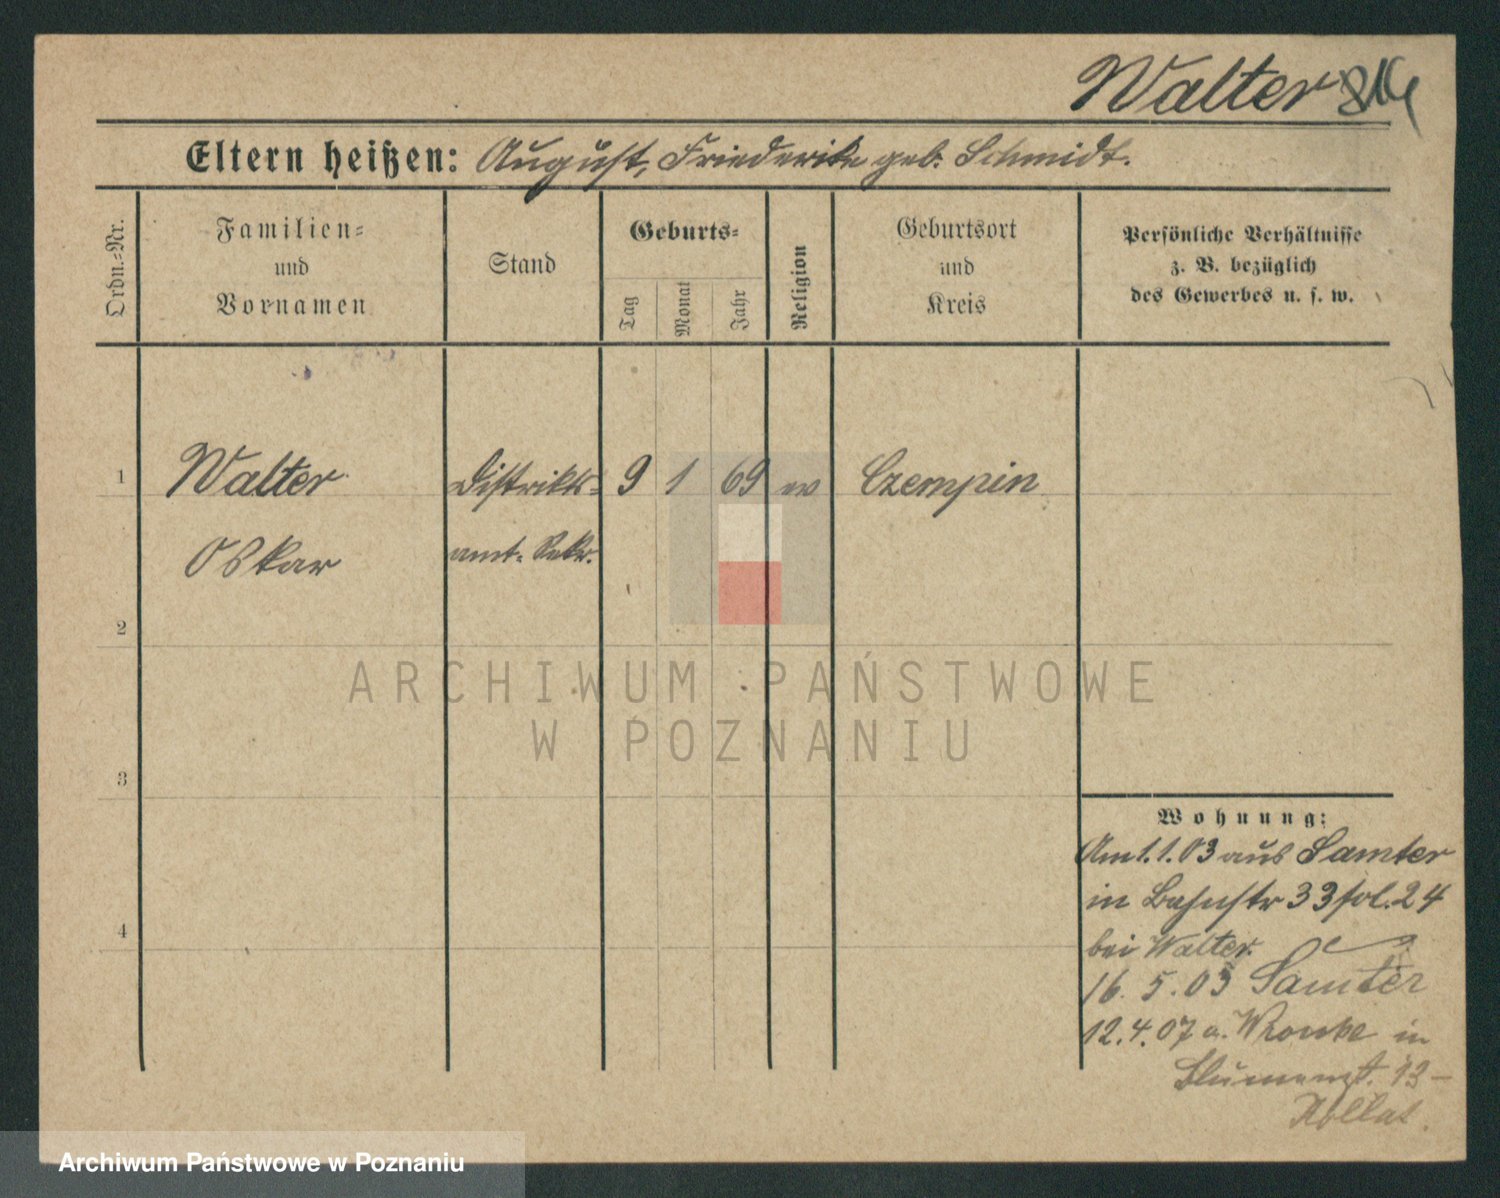 Walter
Eltern heißen: August, Friederike geb. Schmidt.
Ordn.-Nr.
Familien-
und
Vornamen
Stand
Geburts-
Tag
Monat
Jahr
Religion
Geburtsort
und
Kreis
Persönliche Verhältnisse
z. B. bezüglich
des Gewerbes u. s. w.
1
Walter
Distrikts-
9
1
69
ev
Czempin
Oskar
amt. Sekr.
2
ARCHIWUM PAŃSTWOWE
W POZNANIU
3
Wohnung:
Am 1.1.03 aus Samter
in Bahnstr 33 fol. 24
4
bei Walter.
16. 5. 03 Samter
12.4.07 a. Wronke in
Blumenst. 13 -
Archiwum Państwowe w Poznaniu